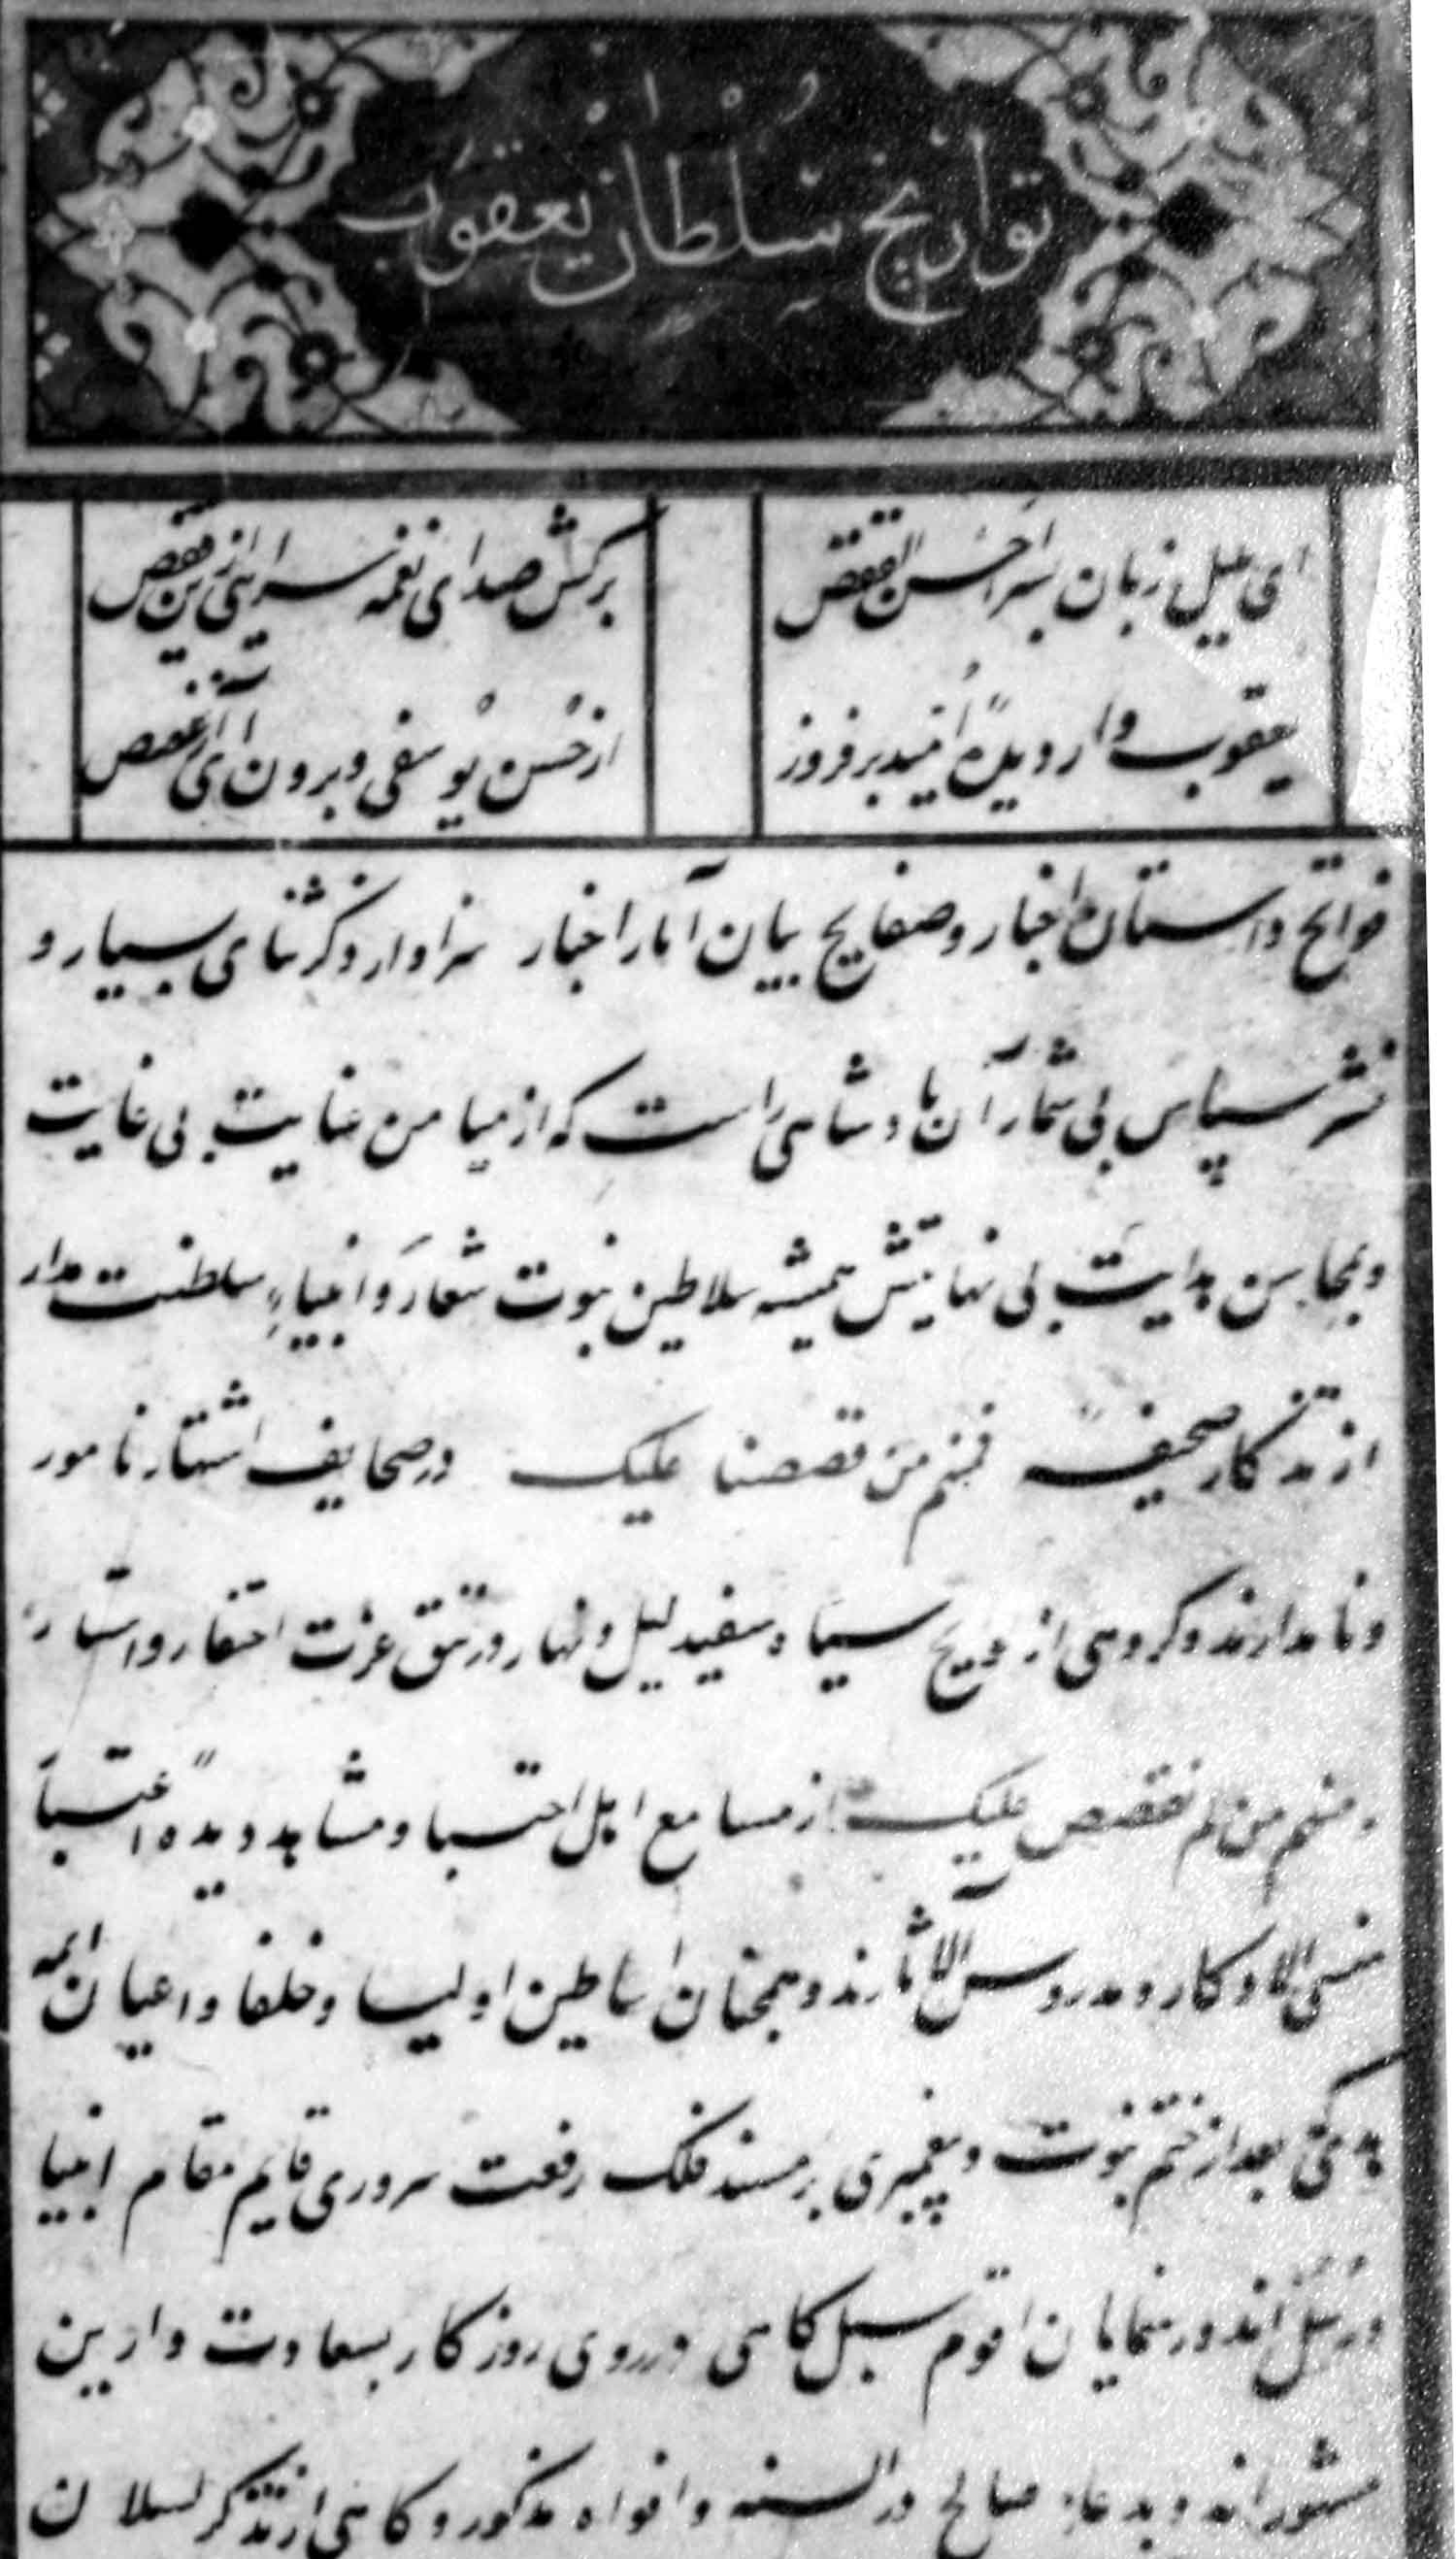 تواریخ سلطان یعقوب
ای بلبل زبان بسرا احسن القصص
برکش صدای نغمه سرایی ازین قفص
یعقوب وار دیدهٔ امید برفروز
از حسن یوسفی و برون آی از غصص
فواتح داستان اخبار و صفایح بیان آثار اخیار سزاوار ذکر ثنای بسیار و
نشر سپاس بی شمار آن پادشاهی راست که از میامن عنایت بی غایت
و بمحاسن هدایت بی نهایتش همیشه سلاطین نبوت شعار و انبیاءِ سلطنت مدار
از تذکار صحیفهٔ فمنهم من قصصنا علیک در صحایف اشتهار نامور
و نامدارند و گروهی از سیاه و سفید لیل و نهار در تتق عزت اختفار و استتار
و منهم من لم نقصص علیک از مسامع اهل اختبار و مشاهد دیدهٔ اعتبار
منسی الاذکار و مدروس الآثارند و همچنان اساطین اولیا و خلفا و اعیان ائمه
هدی بعد از ختم نبوت و پیغمبری بر مسند فلک رفعت سروری قایم مقام انبیا
و رسل اند و رهنمایان اقوم سبل گاهی در روی روزگار بسعادت دارین
مشهور اند و بدعاء صالح در السنه و افواه مذکور و گاهی از تذکر